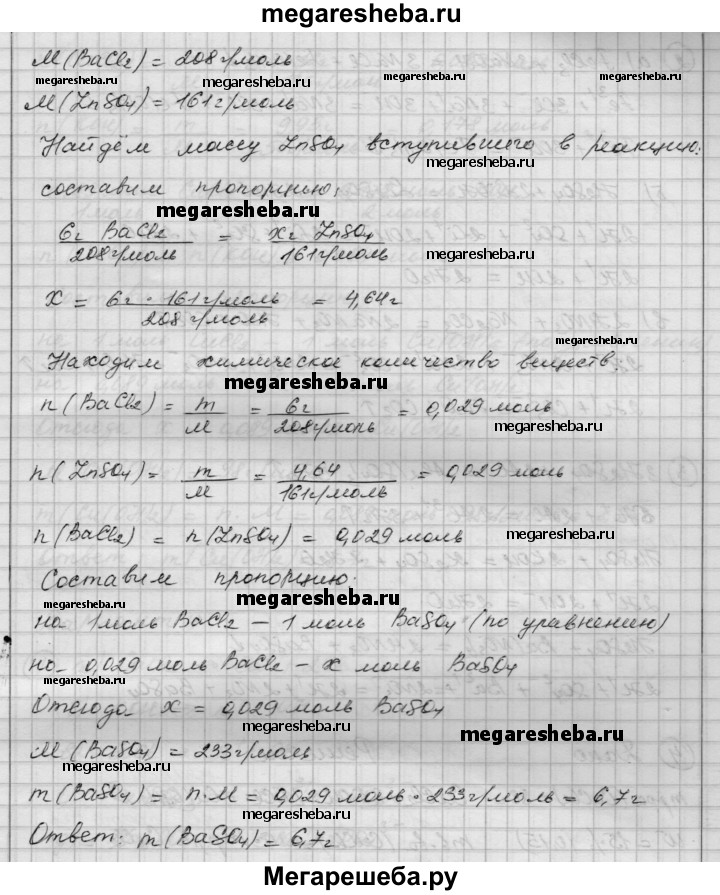 megaresheba.ru
M(BaCl₂) = 208 г/моль
megaresheba.ru megaresheba.ru megaresheba.ru
M(ZnSO₄) = 161 г/моль
Найдём массу ZnSO₄ вступившего в реакцию:
megaresheba.ru
составим пропорцию:
megaresheba.ru
6г BaCl₂ / 208 г/моль = xг ZnSO₄ / 161 г/моль
megaresheba.ru megaresheba.ru
x = 6г · 161 г/моль / 208 г/моль = 4,64г
megaresheba.ru
Находим химическое количество веществ.
megaresheba.ru
n(BaCl₂) = m/M = 6г / 208 г/моль = 0,029 моль
megaresheba.ru megaresheba.ru
n(ZnSO₄) = m/M = 4,64 / 161 г/моль = 0,029 моль
megaresheba.ru megaresheba.ru
n(BaCl₂) = n(ZnSO₄) = 0,029 моль
megaresheba.ru
Составим пропорцию.
megaresheba.ru megaresheba.ru
на 1 моль BaCl₂ – 1 моль BaSO₄ (по уравнению)
на 0,029 моль BaCl₂ – x моль BaSO₄
megaresheba.ru
Отсюда x = 0,029 моль BaSO₄
megaresheba.ru megaresheba.ru
M(BaSO₄) = 233 г/моль
megaresheba.ru
m(BaSO₄) = n·M = 0,029 моль · 233 г/моль = 6,7г
megaresheba.ru
Ответ: m(BaSO₄) = 6,7г
megaresheba.ru
Мегарешеба.ру